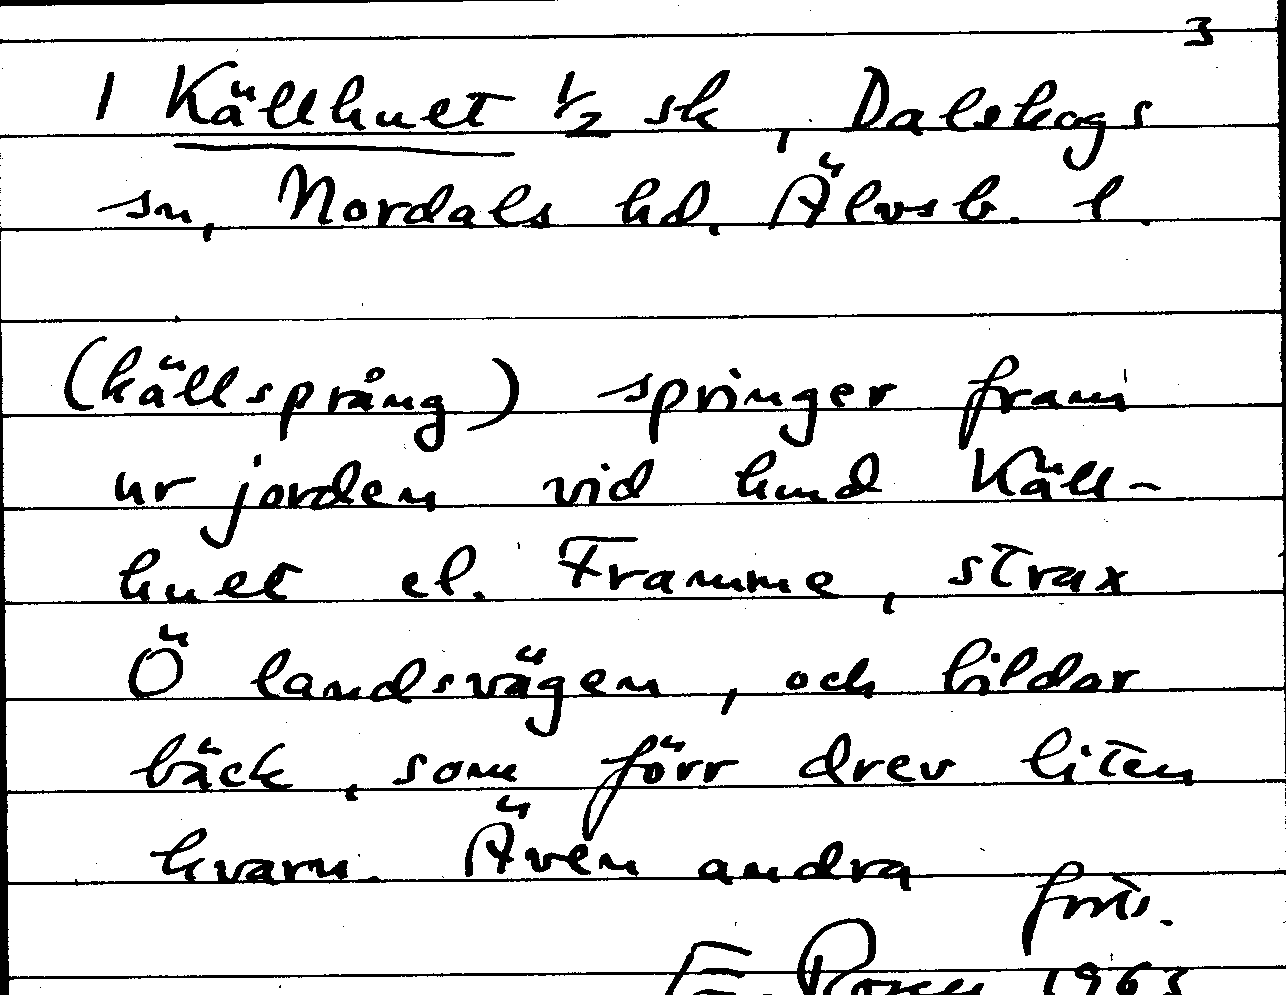 3
1 Källhuet 1/2 sk, Dalskogs
sn, Nordals hd. Älvsb. l.
(källsprång) springer fram
ur jorden vid hmd Käll-
huet el. Framme, strax
Ö landsvägen, och bildar
bäck, som förr drev liten
kvarn. Även andra
forts.
1963